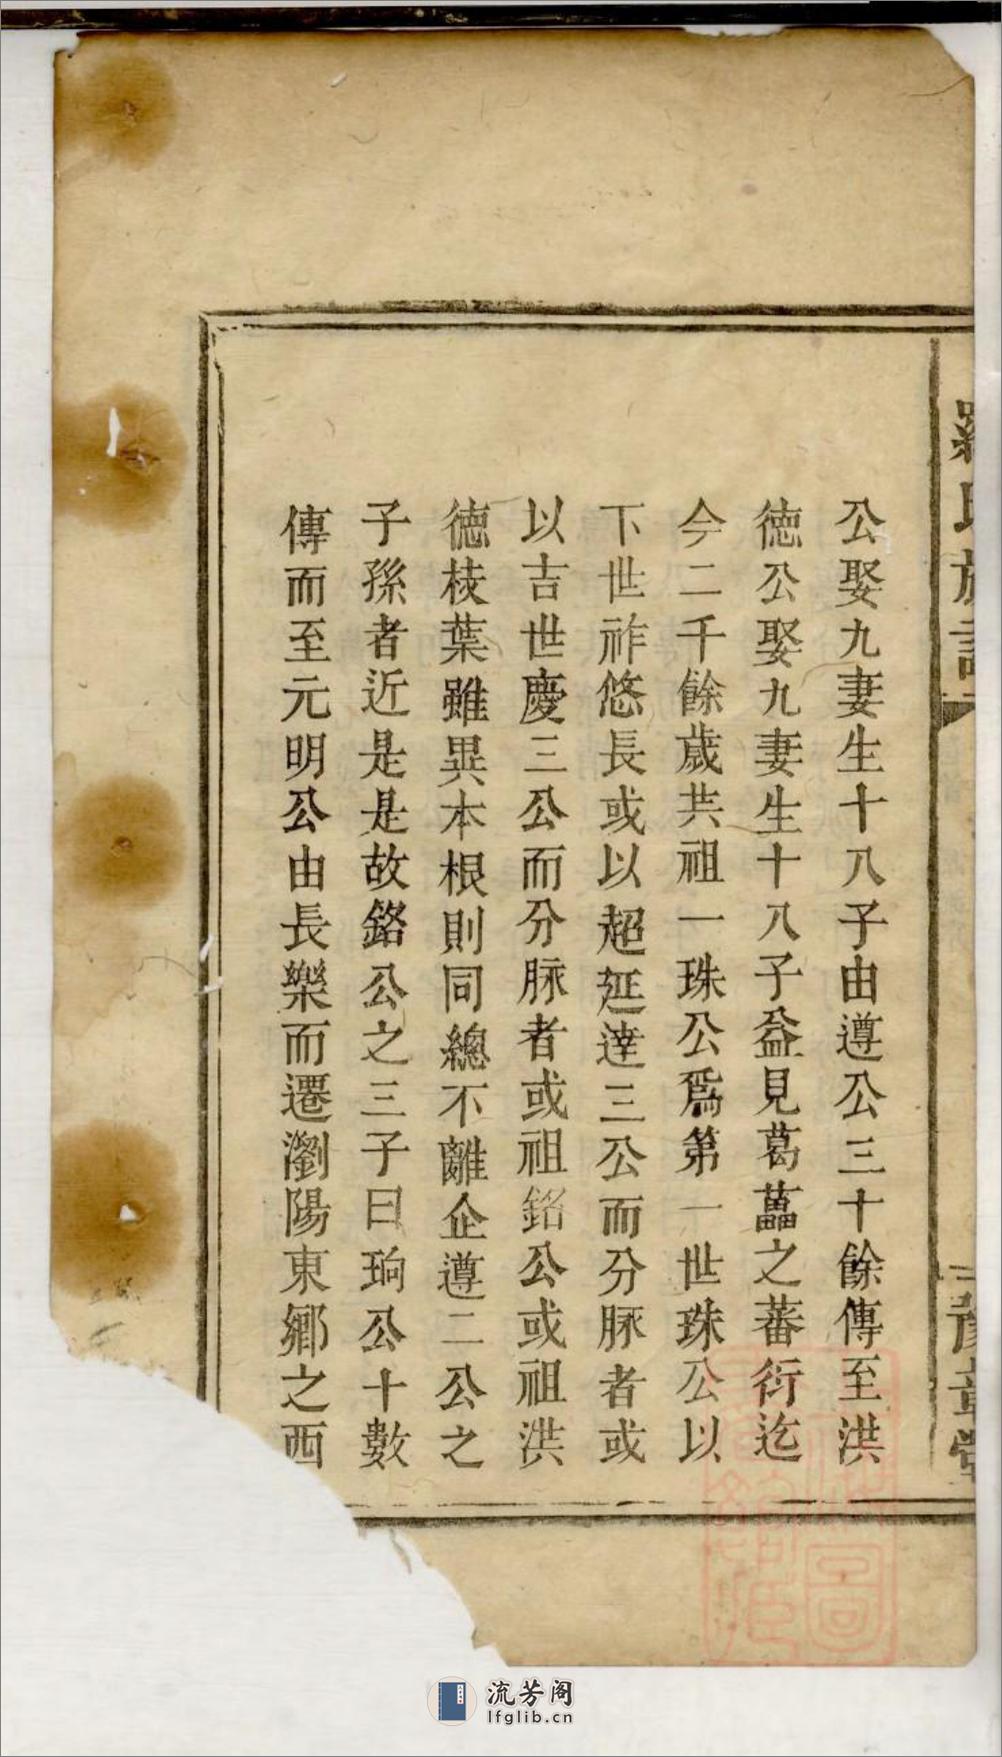 羅氏族譜
豫章堂
公娶九妻生十八子由遵公三十餘傳至洪
德公娶九妻生十八子益見葛藟之蕃衍迄
今二千餘歲共祖一珠公爲第一世珠公以
下世祚悠長或以超延達三公而分脉者或
以吉世慶三公而分脉者或祖銘公或祖洪
德枝葉雖異本根則同總不離企遵二公之
子孫者近是是故銘公之三子曰珦公十數
傳而至元明公由長樂而遷瀏陽東鄉之西
流芳阁
lfglib.cn